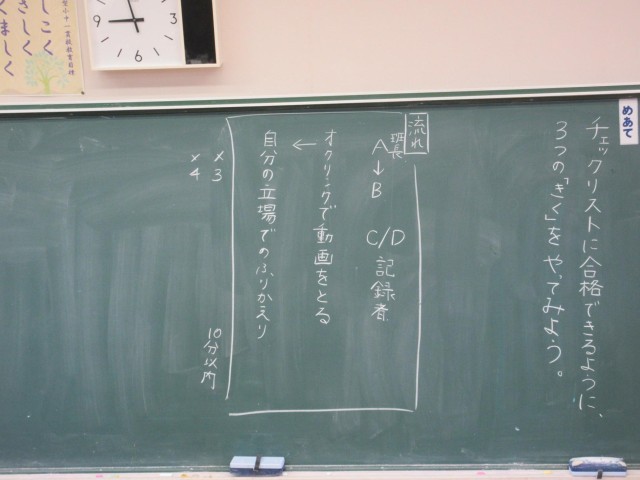 めあて
チェックリストに合格できるように、
3つの「きく」をやってみよう。
流れ
班長
A→B
C/D 記録者
オクリンクで動画をとる
↓
自分の立場でのふりかえり
×3
×4
10分以内
12
3
6
9
しこく
さしく
くましく